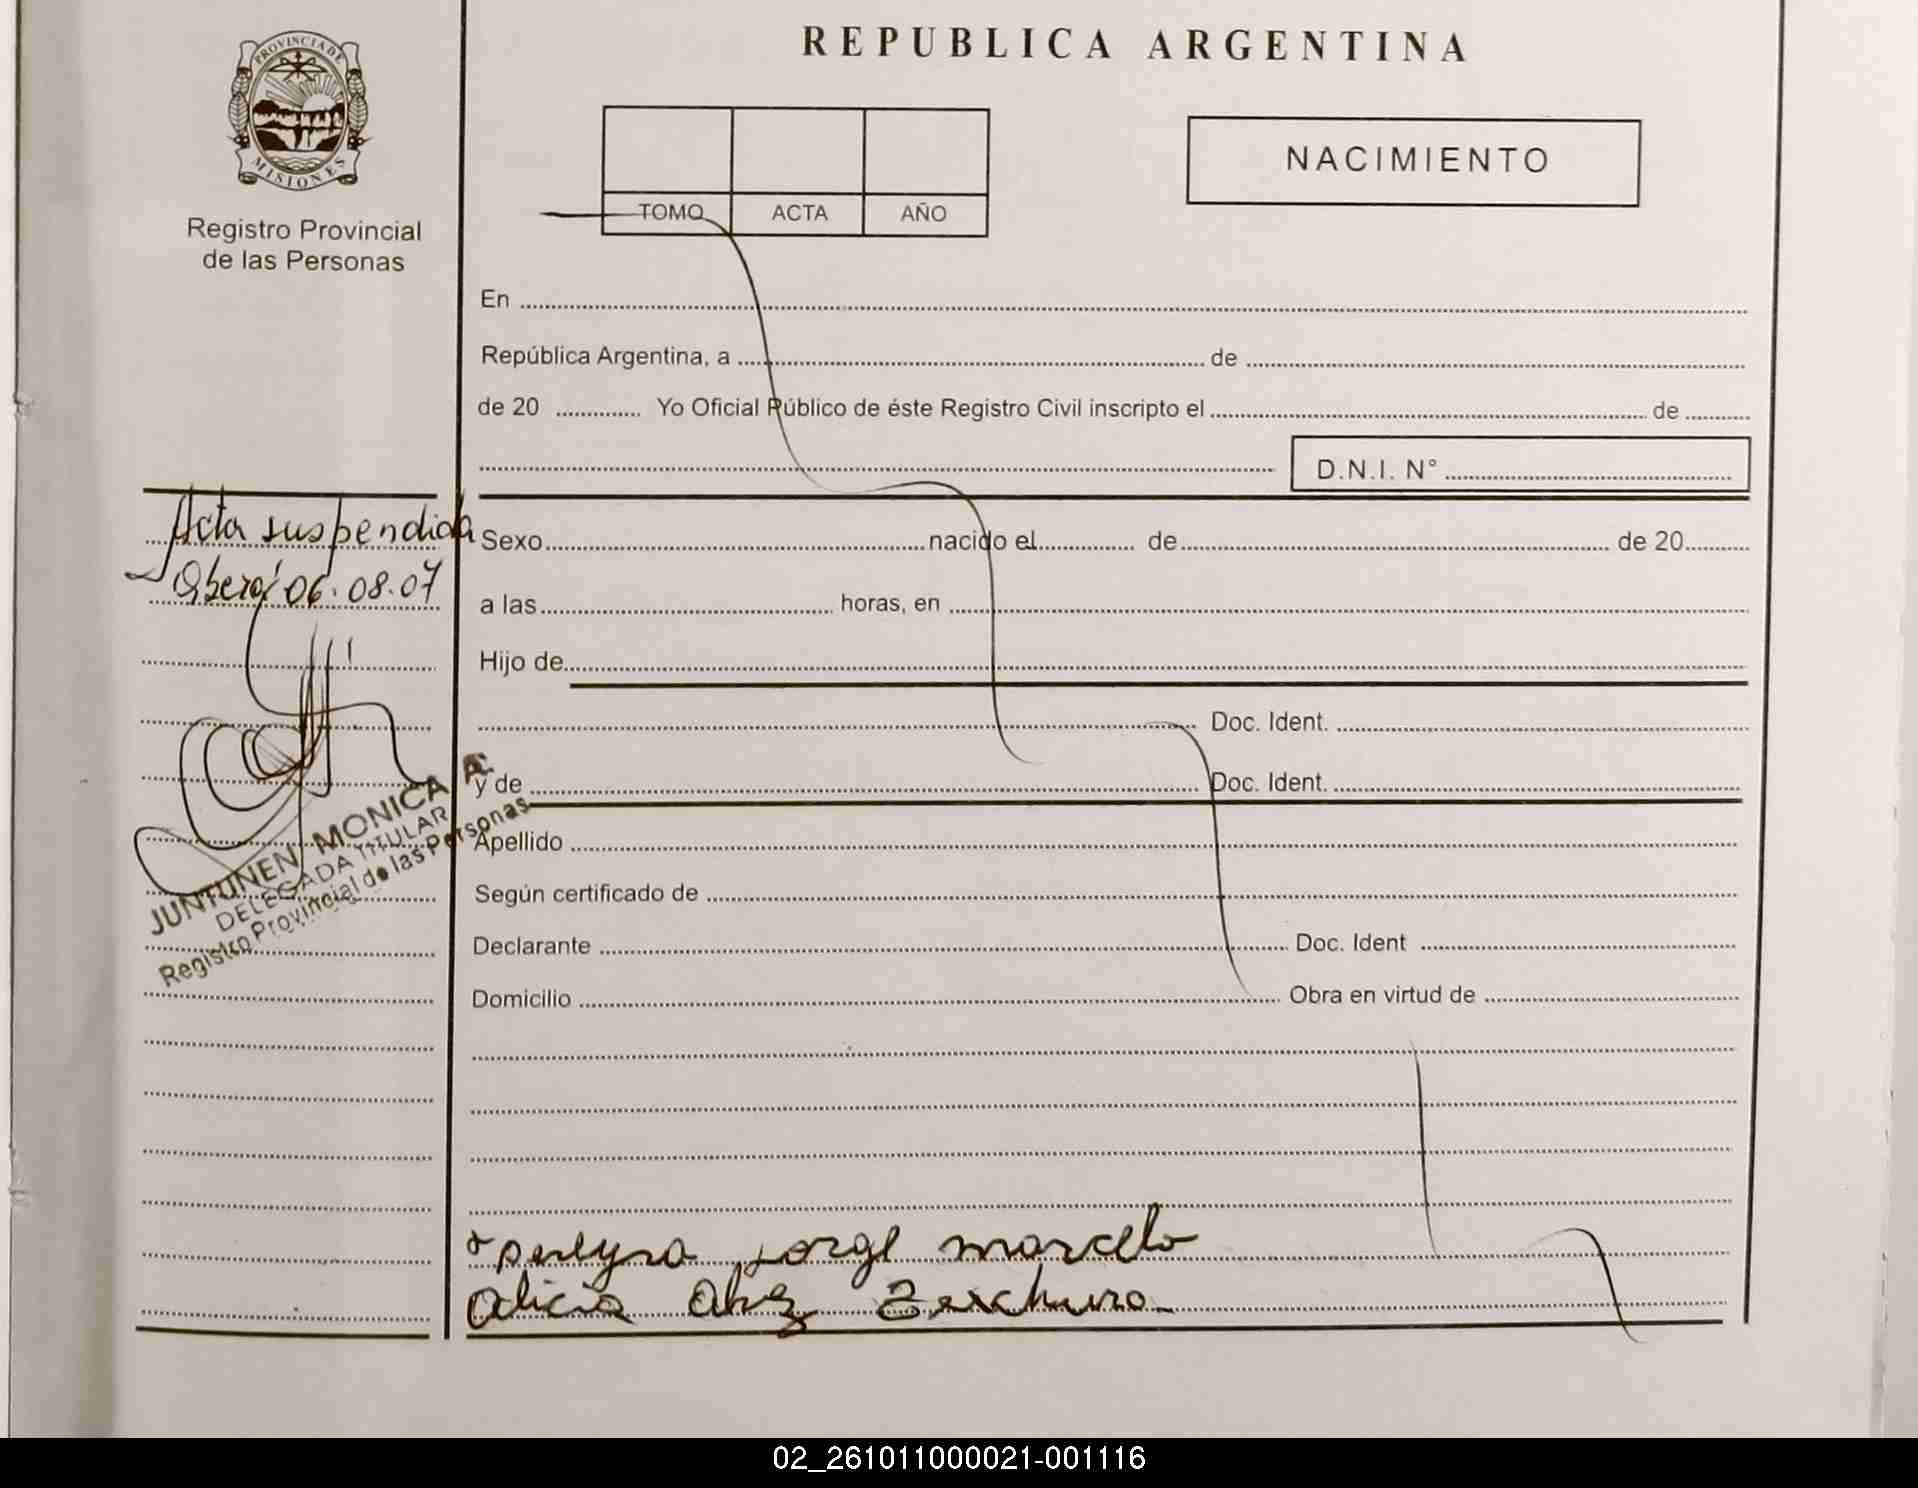 PROVINCIA DE
MISIONES
Registro Provincial
de las Personas
REPUBLICA ARGENTINA
TOMO ACTA AÑO
NACIMIENTO
En
República Argentina, a de
de 20 Yo Oficial Público de éste Registro Civil inscripto el de
D.N.I. N°
Acta suspendida
Oberá 06.08.07
JUNTUNEN MONICA A.
DELEGADA TITULAR
Registro Provincial de las Personas
Sexo nacido el de de 20
a las horas, en
Hijo de
Doc. Ident.
y de Doc. Ident.
Apellido
Según certificado de
Declarante Doc. Ident
Domicilio Obra en virtud de
pereyra jorge marcelo
alicia
02_261011000021-001116